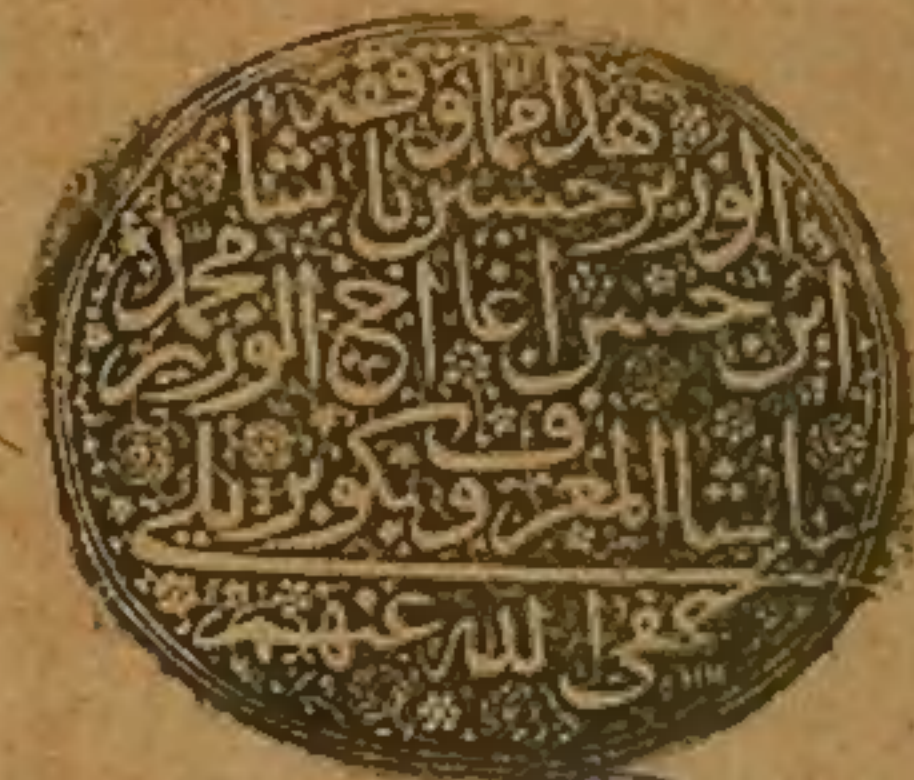 هذا مما وقفه
الوزير حسين باشا
ابن حسن اغا اخى الوزير محمد
باشا المعروف بكوبريلى
عفى الله عنهم